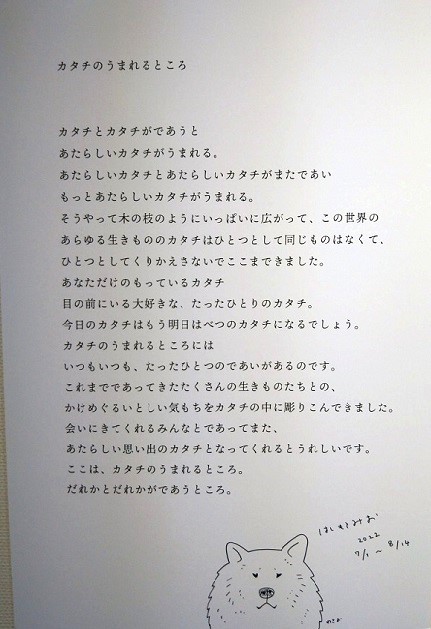 カタチのうまれるところ
カタチとカタチがであうと
あたらしいカタチがうまれる。
あたらしいカタチとあたらしいカタチがまたであい
もっとあたらしいカタチがうまれる。
そうやって木の枝のようにいっぱいに広がって、この世界の
あらゆる生きもののカタチはひとつとして同じものはなくて、
ひとつとしてくりかえさないでここまできました。
あなただけのもっているカタチ
目の前にいる大好きな、たったひとりのカタチ。
今日のカタチはもう明日はべつのカタチになるでしょう。
カタチのうまれるところには
いつもいつも、たったひとつのであいがあるのです。
これまでであってきたたくさんの生きものたちとの、
かけめぐるいとしい気もちをカタチの中に彫りこんできました。
会いにきてくれるみんなとであってまた、
あたらしい思い出のカタチとなってくれるとうれしいです。
ここは、カタチのうまれるところ。
だれかとだれかがであうところ。
はしもとみお
2022
7/1 ~ 8/14